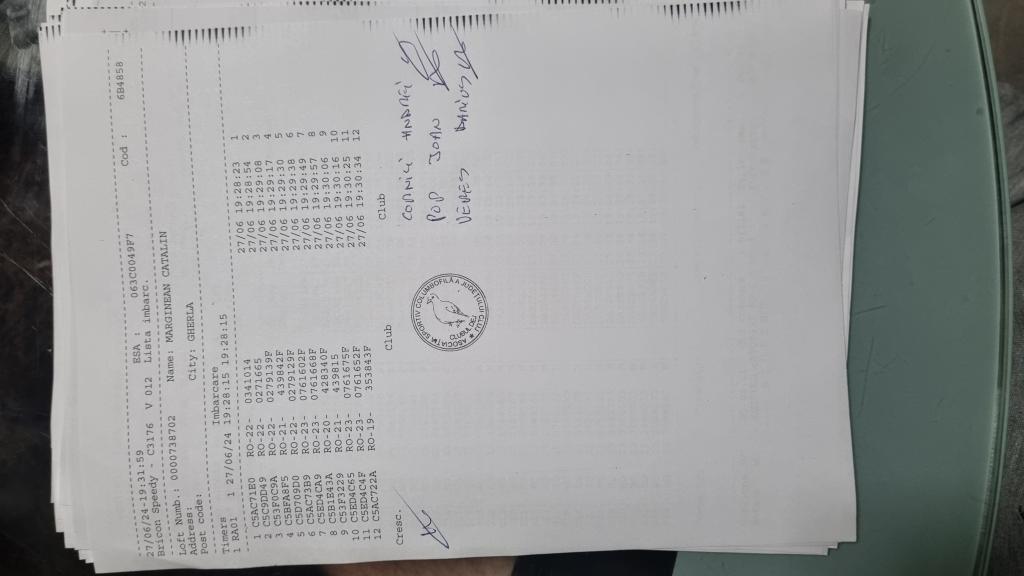 27/06/24-19:31:59 ESA : 063C0049F7 Cod : 6B4858
Bricon Speedy C3176 V 012 Lista imbarc.
Loft Numb.: 0000738702 Name: MARGINEAN CATALIN
Address:
Post code: City: GHERLA
Timers Imbarcare
1 RA01 1 27/06/24 19:28:15 19:28:15
1 C5AC71E0 RO-22- 0341014 27/06 19:28:23 1
2 C5C9DD49 RO-22- 0271665 27/06 19:28:54 2
3 C53F0C9A RO-22- 0279139F 27/06 19:29:08 3
4 C5BFA8F5 RO-21- 439842F 27/06 19:29:17 4
5 C5D709D0 RO-22- 0279129F 27/06 19:29:30 5
6 C5AC73B9 RO-23- 0761602F 27/06 19:29:38 6
7 C5ED4CA9 RO-23- 0761668F 27/06 19:29:49 7
8 C5B1E43A RO-20- 428340F 27/06 19:29:57 8
9 C53F3229 RO-21- 439815 27/06 19:30:06 9
10 C5ED4C65 RO-23- 0761675F 27/06 19:30:16 10
11 C5ED4C4F RO-23- 0761652F 27/06 19:30:25 11
12 C5AC722A RO-19- 353843F 27/06 19:30:34 12
Cresc. Club Club
POP IOAN
VERES DARIUS
ASOCIAȚIA SPORTIV COLUMBOFILĂ A JUDEȚULUI CLUJ
CLUBUL DEJ